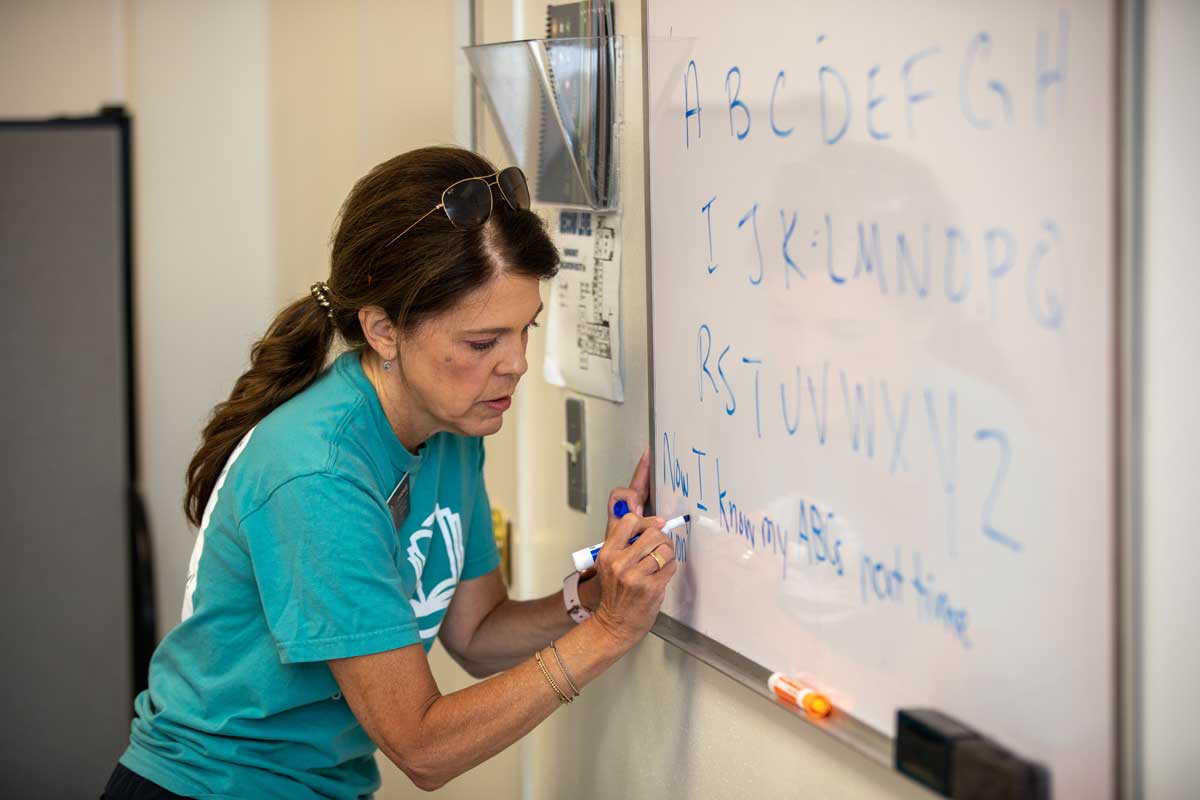 A B C D E F G H
I J K L M N O P Q
R S T U V W X Y Z
Now I know my ABCs next time